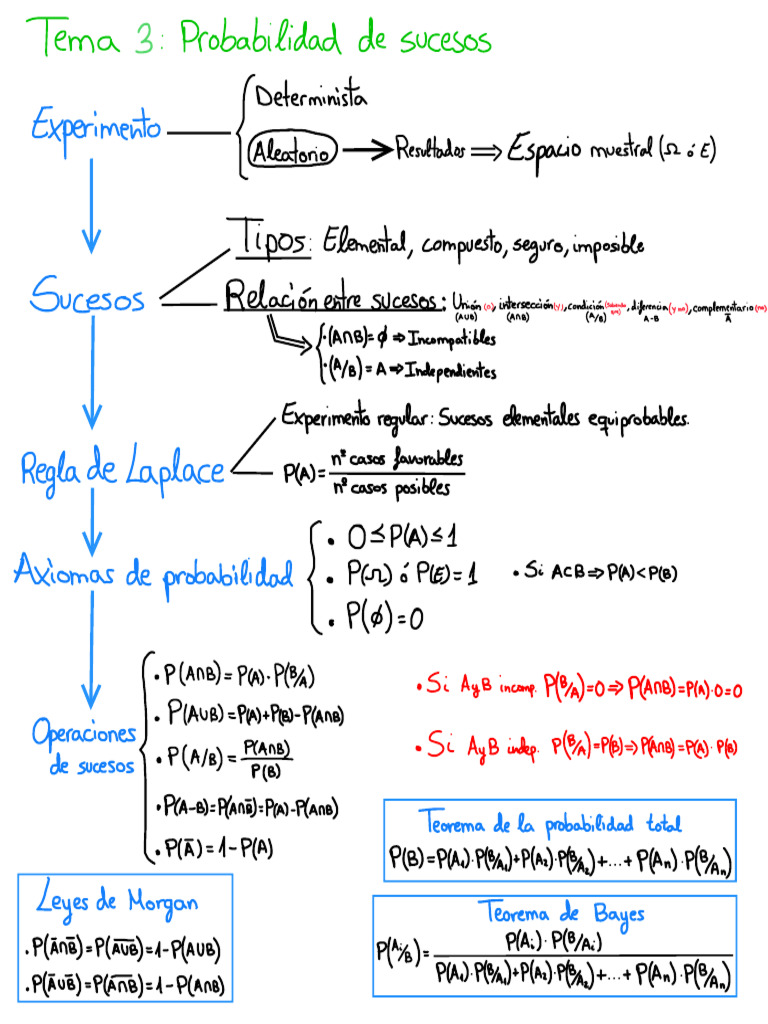 Tema 3: Probabilidad de sucesos
Experimento
Determinista
Aleatorio → Resultados ⇒ Espacio muestral (Ω ó E)
Sucesos
Tipos: Elemental, compuesto, seguro, imposible
Relación entre sucesos: Unión (o), intersección (y), condición (sabiendo que), diferencia (y no), complementario (no)
(A∪B) (A∩B) (A/B) A-B Ā
· (A∩B)=ϕ ⇒ Incompatibles
· (A/B)=A ⇒ Independientes
Regla de Laplace
Experimento regular: Sucesos elementales equiprobables.
P(A)= nº casos favorables / nº casos posibles
Axiomas de probabilidad
· 0≤P(A)≤1
· P(Ω) ó P(E)=1
· Si A⊂B ⇒ P(A)<P(B)
· P(ϕ)=0
Operaciones de sucesos
· P(A∩B)=P(A)·P(B/A)
· P(A∪B)=P(A)+P(B)-P(A∩B)
· P(A/B)= P(A∩B) / P(B)
· P(A-B)=P(A∩B̄)=P(A)-P(A∩B)
· P(Ā)=1-P(A)
· Si A y B incomp. P(B/A)=0 ⇒ P(A∩B)=P(A)·0=0
· Si A y B indep. P(B/A)=P(B) ⇒ P(A∩B)=P(A)·P(B)
Teorema de la probabilidad total
P(B)=P(A₁)·P(B/A₁)+P(A₂)·P(B/A₂)+...+P(Aₙ)·P(B/Aₙ)
Leyes de Morgan
· P(Ā∩B̄)=P(A̅∪̅B̅)=1-P(A∪B)
· P(Ā∪B̄)=P(A̅∩̅B̅)=1-P(A∩B)
Teorema de Bayes
P(Aᵢ/B)= P(Aᵢ)·P(B/Aᵢ) / P(A₁)·P(B/A₁)+P(A₂)·P(B/A₂)+...+P(Aₙ)·P(B/Aₙ)